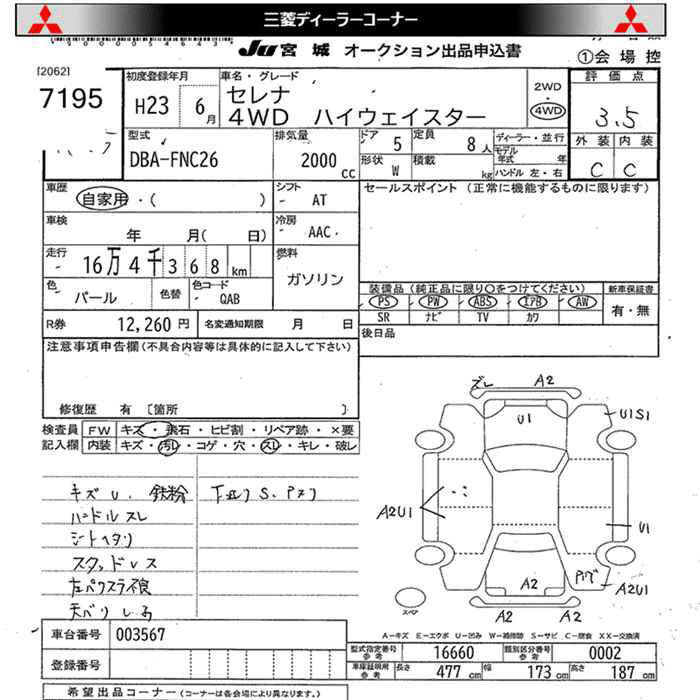 三菱ディーラーコーナー
JU 宮城 オークション出品申込書
①会場控
[2062]
7195
初度登録年月
H23 6月
車名・グレード
セレナ
4WD ハイウェイスター
2WD
4WD
評価点
3.5
型式
DBA-FNC26
排気量
2000 cc
ドア 5
定員 8人
形状 W
積載 kg
ディーラー・並行
モデル年式 年
ハンドル 左・右
外装 内装
C C
車歴
自家用・( )
シフト AT
セールスポイント (正常に機能するものに限ります)
車検
年 月( 日)
冷房 AAC
走行
16万4千368km
燃料
ガソリン
色 パール
色替
色コード QAB
装備品 (純正品に限り〇をつけてください)
新車保証書
PS PW ABS エアB AW
SR ナビ TV カワ
有・無
R券 12,260円
名変通知期限 月 日
後日品
注意事項申告欄(不具合内容等は具体的に記入して下さい)
修復歴 有 〔箇所 〕
検査員記入欄
FW キズ・飛石・ヒビ割・リペア跡・×要
内装 キズ・汚レ・コゲ・穴・スレ・キレ・破レ
キズU. 鉄粉
ハンドルスレ
シートヘタリ
スタッドレス
左パワスラ不良
天バリしみ
下廻りS.
ズレ A2
U1
U1S1
A2U1
U1
A2
A2U1
A2 A2
スペア
A-キズ E-エクボ U-凹み W-補修跡 S-サビ C-腐食 XX-交換済
車台番号 003567
登録番号
型式指定番号参考 16660
類別区分番号参考 0002
車庫証明用参考 長さ 477cm 幅 173cm 高さ 187cm
希望出品コーナー (コーナーは各会場により異なります。)